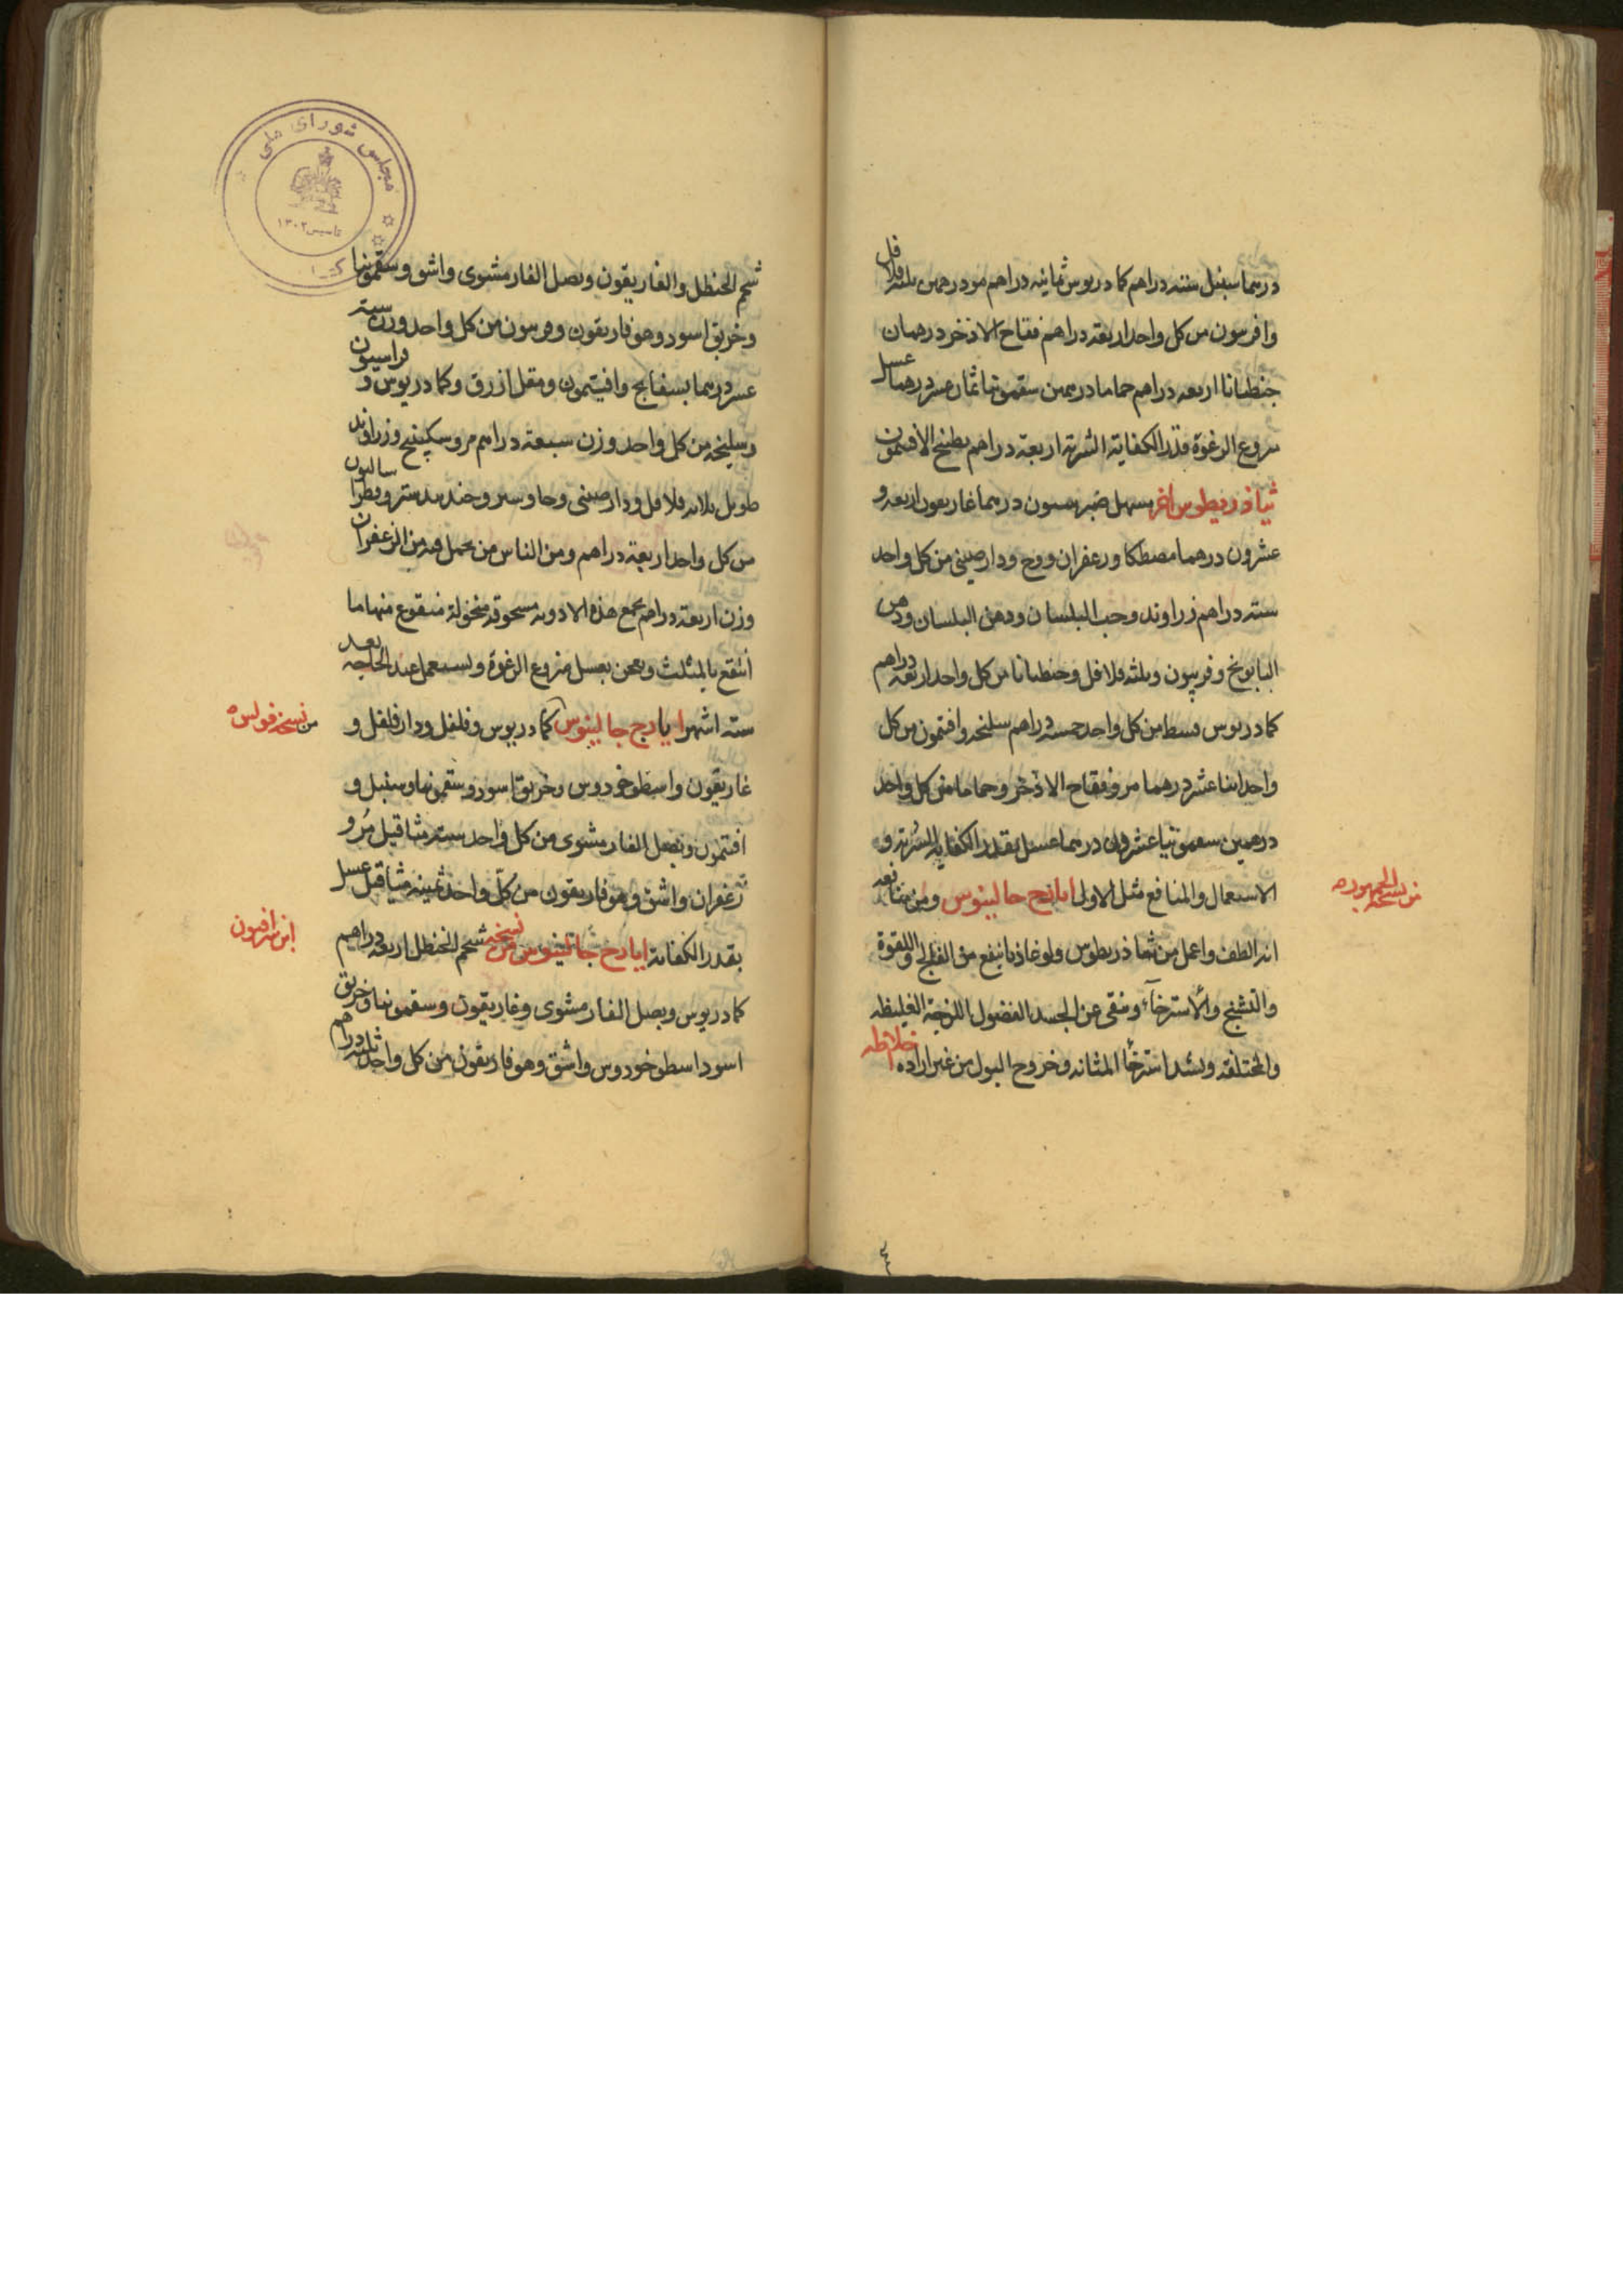 درهما سنبل ستة دراهم كمادريوس ثمانية دراهم مر درهمين ثلثة فلافل
وافربيون من كل واحد اربعة دراهم فقاح الاذخر درهمان
جنطيانا اربعه دراهم حماما درهمين سقمونيا ثمان عشر درهما عسل
منزوع الرغوة قدر الكفاية الشربة اربعة دراهم بطبخ الافتيمون
ثياذريطوس اخر مسهل صبر خمسون درهما غاريقون اربعه و
عشرون درهما مصطكا وزعفران ووج ودارصيني من كل واحد
ستة دراهم زراوند وحب البلسان ودهن البلسان ودهن
البابونج وفربيون وثلثه فلافل وجنطيانا من كل واحد اربعه دراهم
كمادريوس قسط من كل واحد خمسة دراهم سليخه وافتمون من كل
واحد اثنا عشر درهما مر وفقاح الاذخر وحماما من كل واحد
درهمين سقمونيا عشرون درهما عسل بقدر الكفاية الشربة و
الاستعمال والمنافع مثل الاولى ايارج جالينوس ومن منافعه
من نسخة الجمهور
انه الطف واعمل من ثياذريطوس ولوغاذيا ينفع من الفالج واللقوة
والتشنج والاسترخاء وينقي عن الجسد الفضول اللزجة الغليظه
والمختلفه ويشد استرخاء المثانه وخروج البول من غير اراده اخلاطه
شحم الحنظل والغاريقون وبصل الفار مشوى واشق وسقمونيا
وخربق اسود وهوفاريقون وفربيون من كل واحد وزن ستة
عشر درهما بسفايج وافيتمون ومقل ازرق وكمادريوس و فراسيون
وسليخه من كل واحد وزن سبعة دراهم مر وسكبينج وزراوند
طويل ثلاثه فلافل ودارصينى وجاوسير وجندبيدستر وفطراساليون
من كل واحد اربعة دراهم ومن الناس من يجعل فيه من الزعفران
وزن اربعة دراهم يجمع هذه الادويه مسحوقه منخولة منقوع منها ما
انتقع بالمثلث ويعجن بعسل منزوع الرغوة ويستعمل عند الحاجه بعد
ستة اشهر ايارج جالينوس كمادريوس وفلفل ودارفلفل و
من نسخة فولس
غاريقون واسطوخودوس وخربق اسود وسقمونيا وسنبل و
افتمون وبصل الفار مشوى من كل واحد ستة مثاقيل مُر و
زعفران واشق وهوفاريقون من كلّ واحد ثمينه مثاقيل عسل
بقدر الكفاية ايارج جالينوس من نسخة شحم الحنظل اربعه دراهم
ابن سرافيون
كمادريوس وبصل الفار مشوى وغاريقون وسقمونيا وخربق
اسود اسطوخودوس واشق وهوفاريقون من كل واحد ثلثة دراهم
مجلس شوراى ملى
تاسيس ١٣٠٢